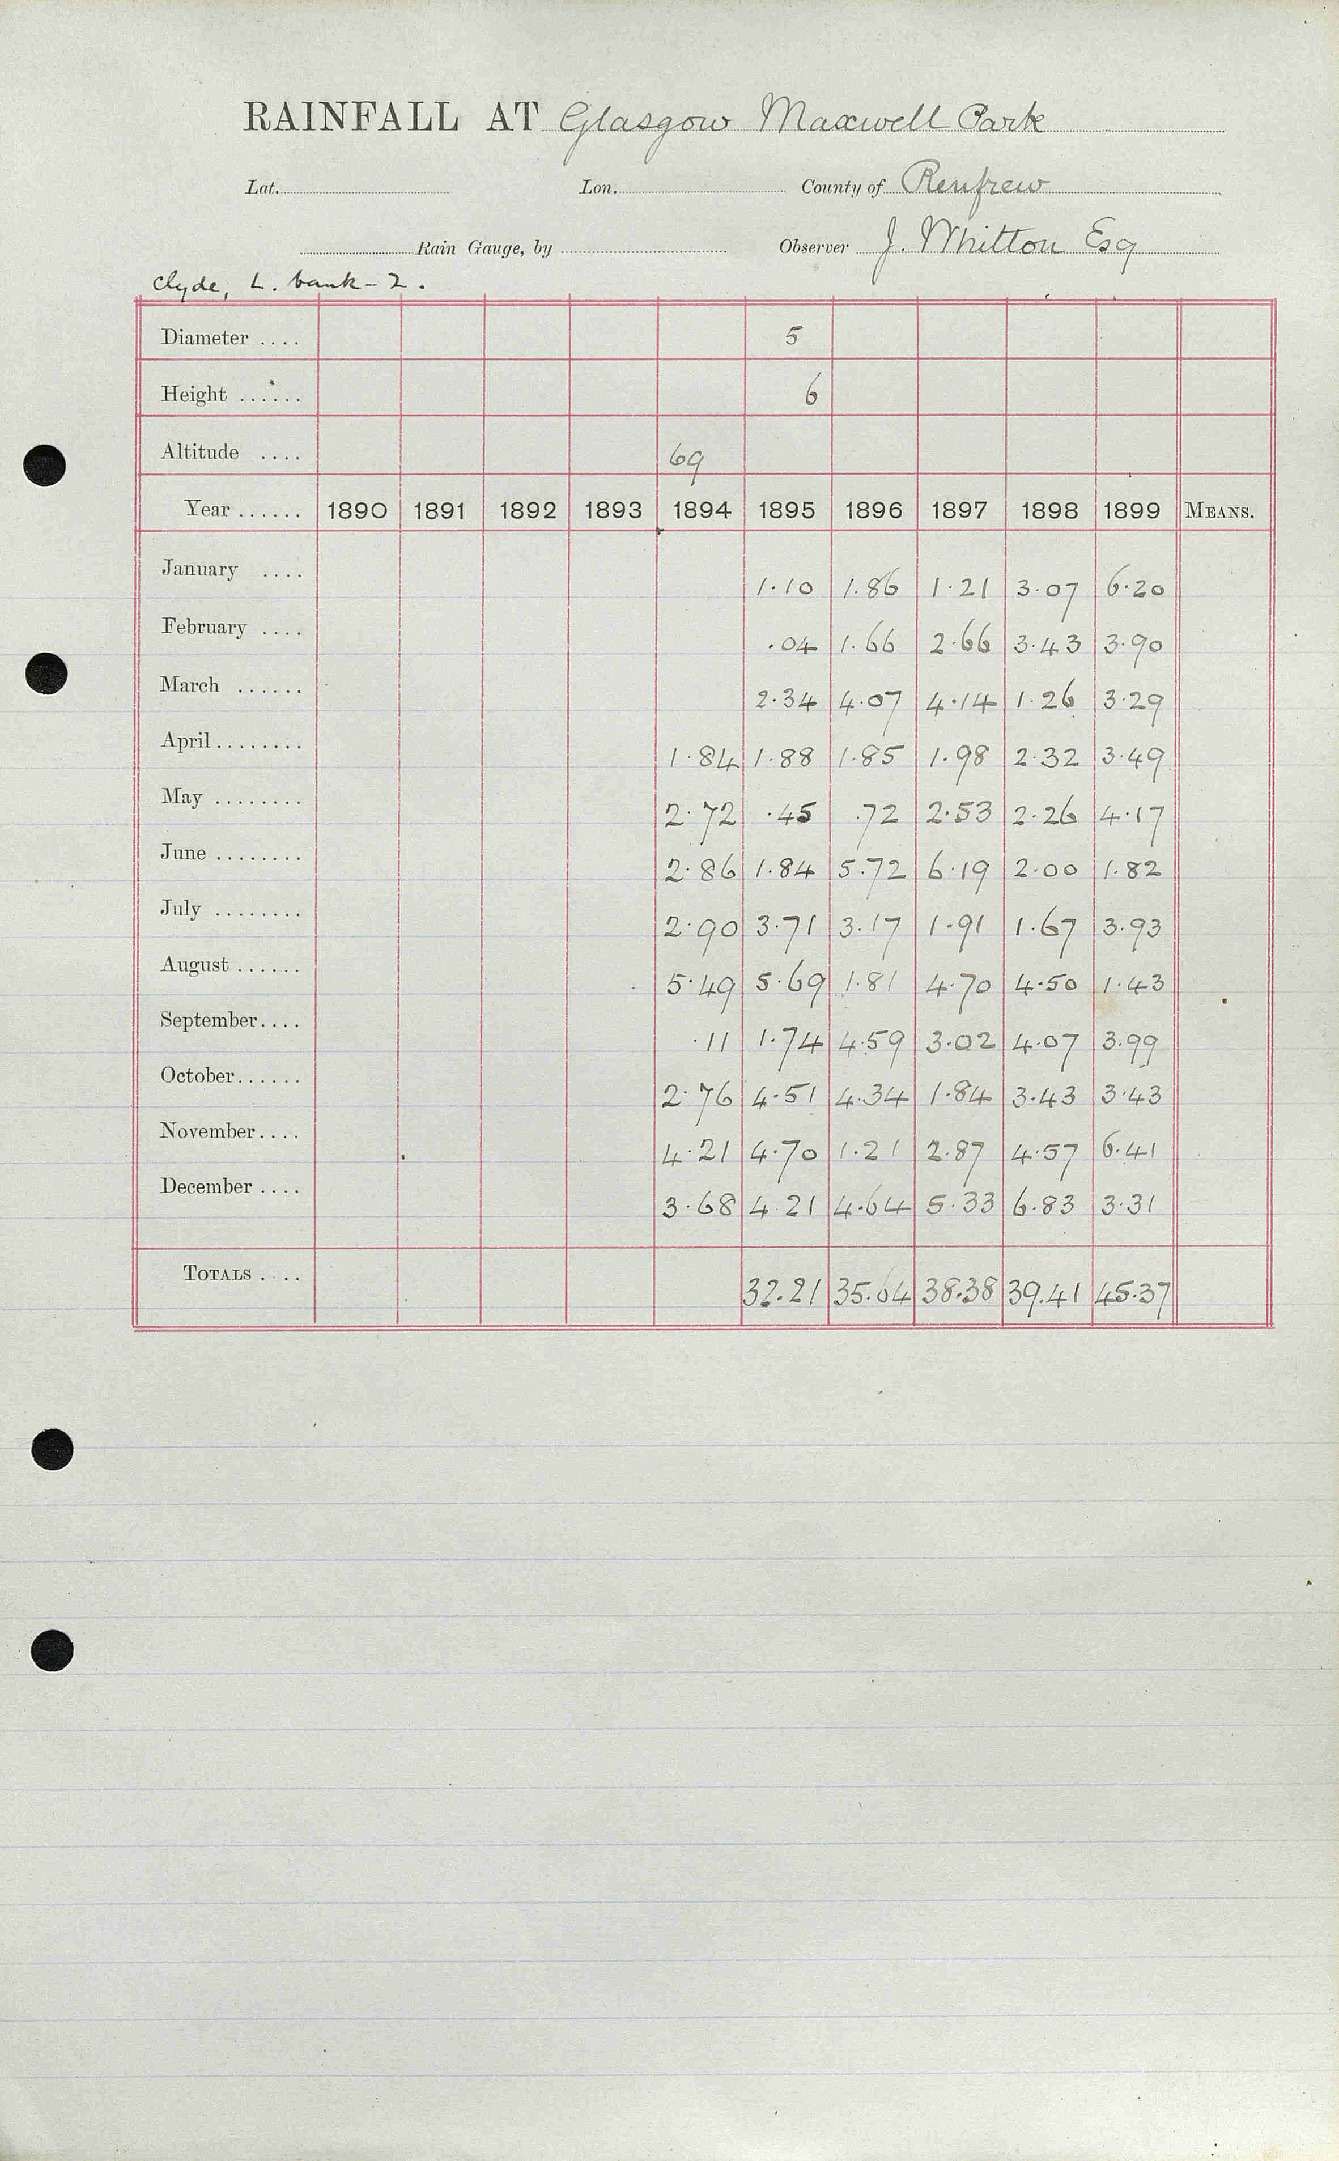 RAINFALL AT Glasgow Maxwell Park
Lat. Lon. County of Renfrew
Rain Gauge, by Observer J. Whitton Esq
Clyde, L. bank - 2.
Diameter .... 5
Height ...... 6
Altitude .... 69
Year ...... 1890 1891 1892 1893 1894 1895 1896 1897 1898 1899 MEANS.
January .... 1.10 1.86 1.21 3.07 6.20
February .... .04 1.66 2.66 3.43 3.90
March ...... 2.34 4.07 4.14 1.26 3.29
April........ 1.84 1.88 1.85 1.98 2.32 3.49
May ........ 2.72 .45 .72 2.53 2.26 4.17
June ........ 2.86 1.84 5.72 6.19 2.00 1.82
July ........ 2.90 3.71 3.17 1.91 1.67 3.93
August ...... 5.49 5.69 1.81 4.70 4.50 1.43
September.... .11 1.74 4.59 3.02 4.07 3.99
October...... 2.76 4.51 4.34 1.84 3.43 3.43
November.... 4.21 4.70 1.21 2.87 4.57 6.41
December .... 3.68 4.21 4.64 5.33 6.83 3.31
TOTALS .... 32.21 35.64 38.38 39.41 45.37